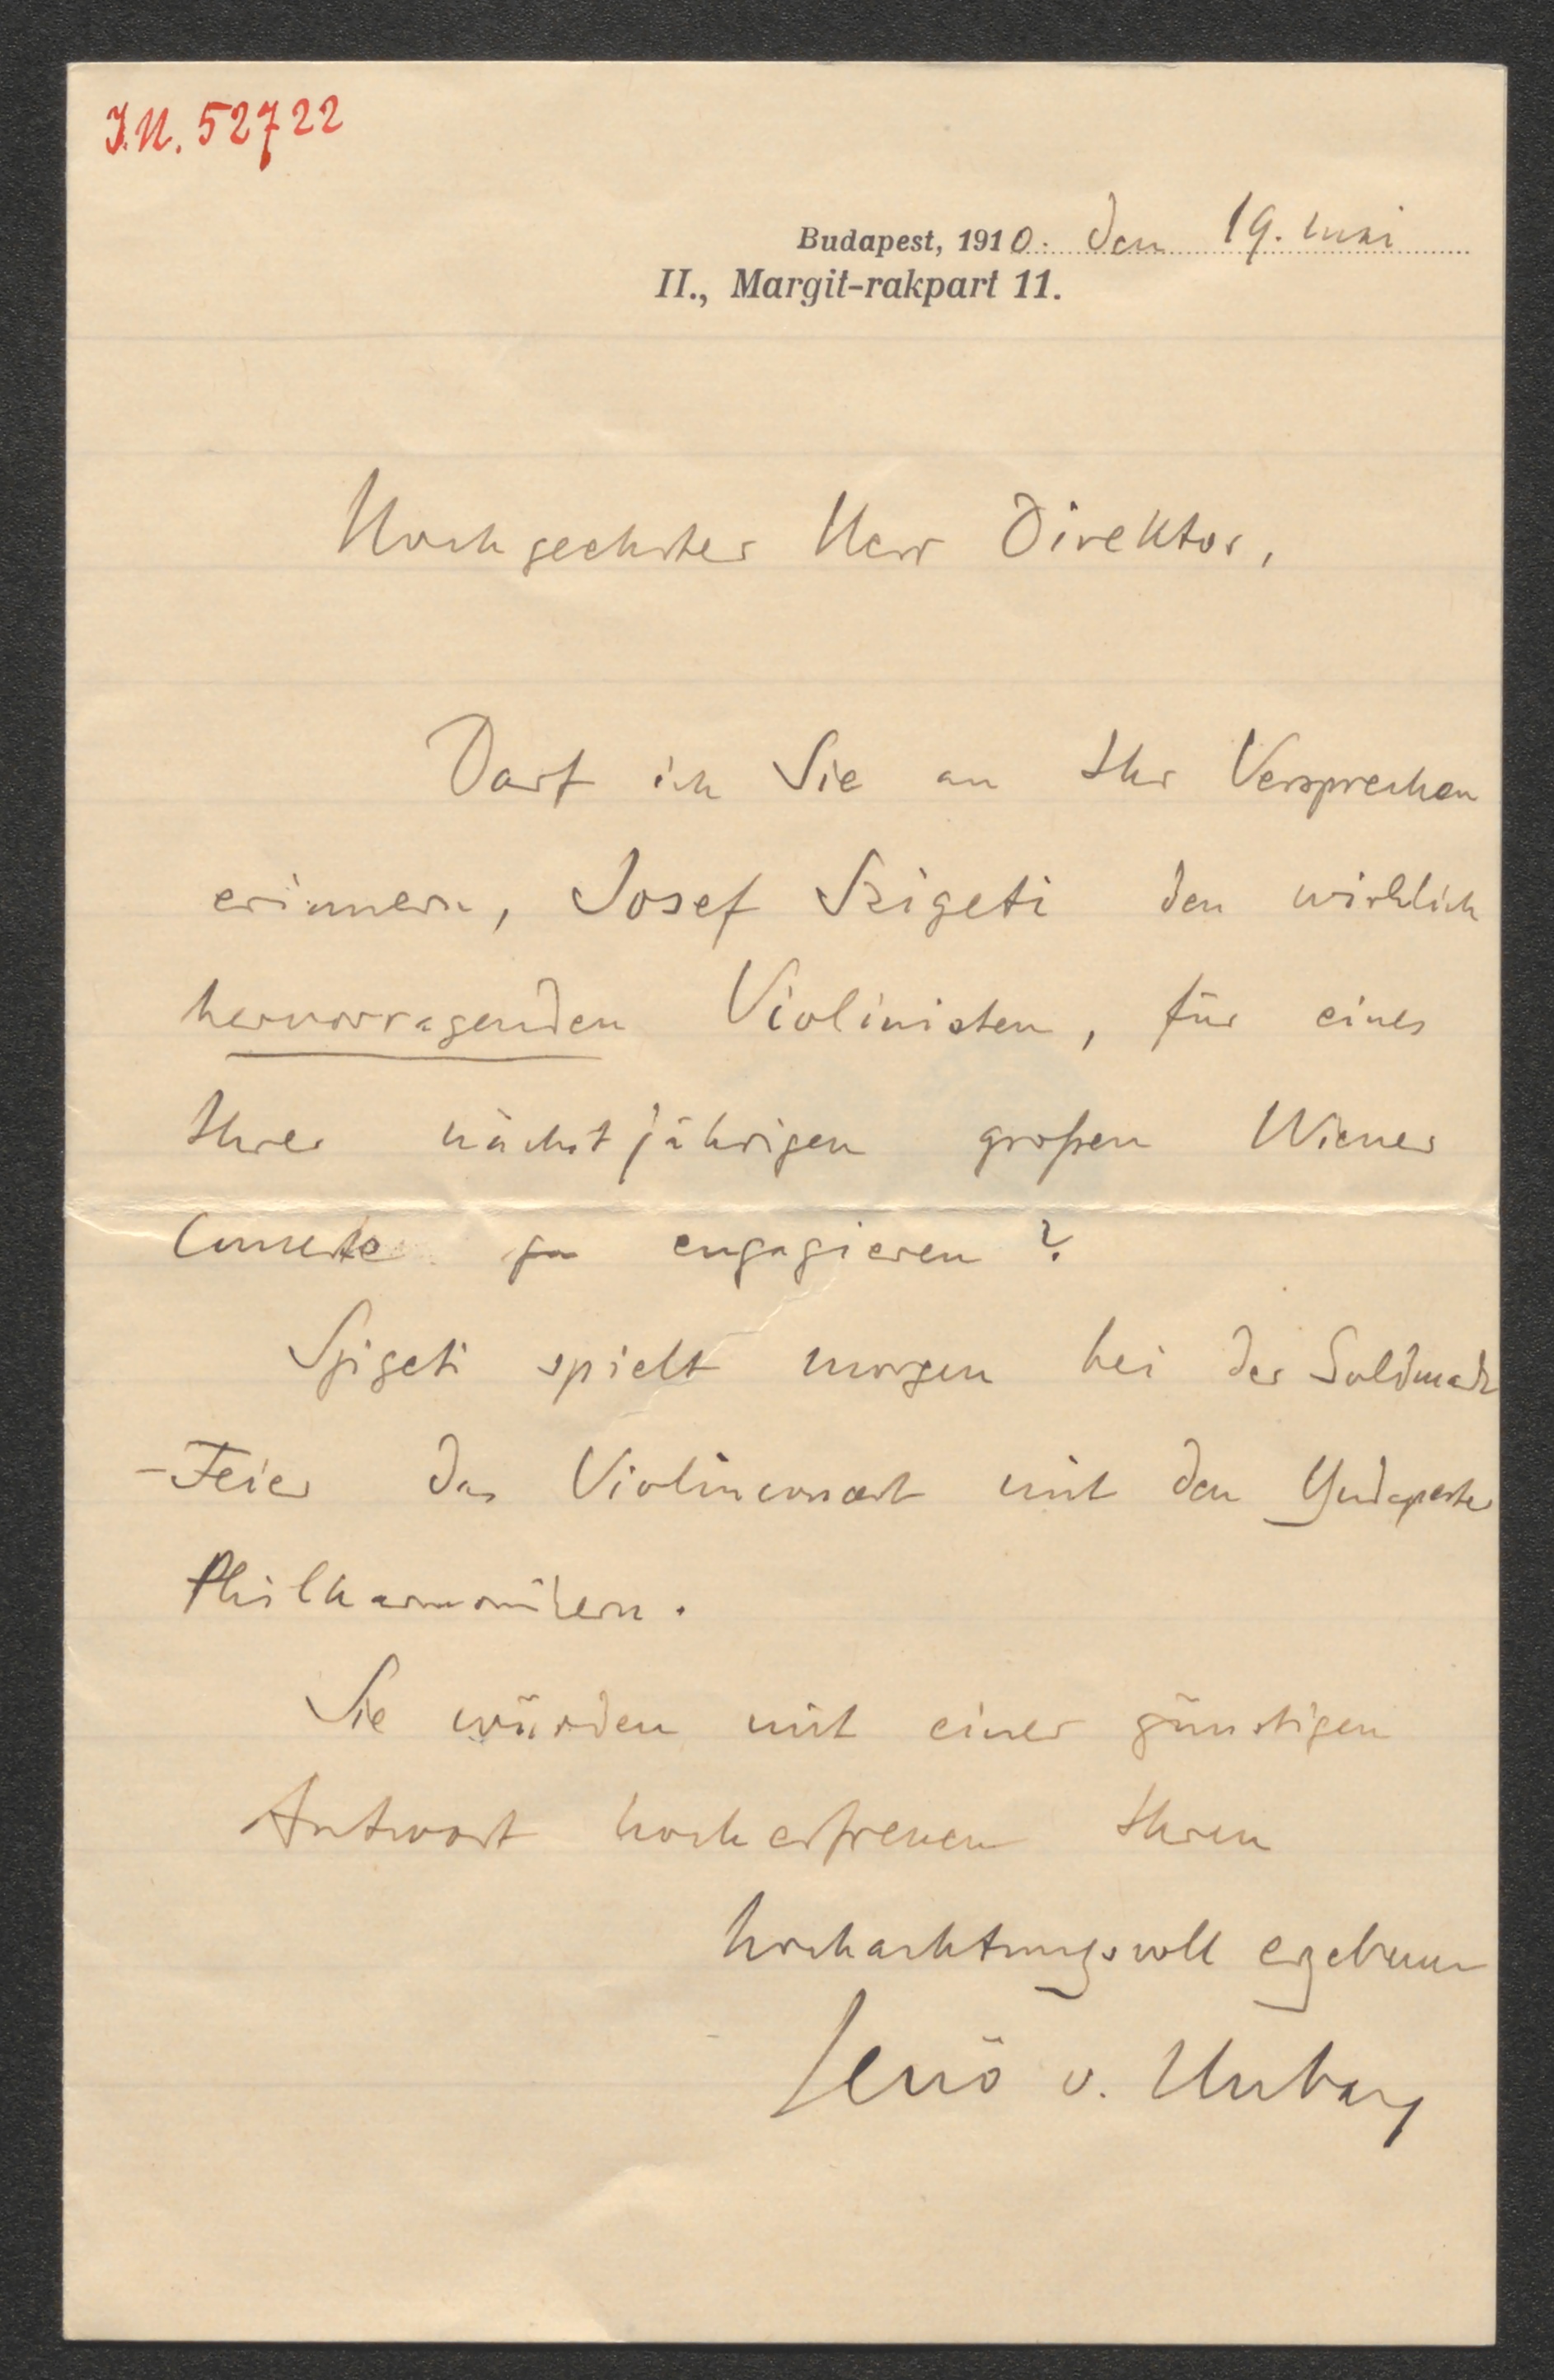 J.N. 52722
Budapest, 1910. den 19. Juni
II., Margit-rakpart 11.
Hochgeehrter Herr Direktor,
Darf ich Sie an Ihr Versprechen
erinnern, Josef Szigeti den wirklich
hervorragenden Violinisten, für eines
Ihrer nächstjährigen großen Wiener
Concerte zu engagieren?
Szigeti spielt morgen bei der Goldmark
-Feier das Violinconcert mit den Budapester
Philharmonikern.
Sie würden mit einer günstigen
Antwort hoch erfreuen Ihren
hochachtungsvoll ergebenen
Jenö v. Hubay